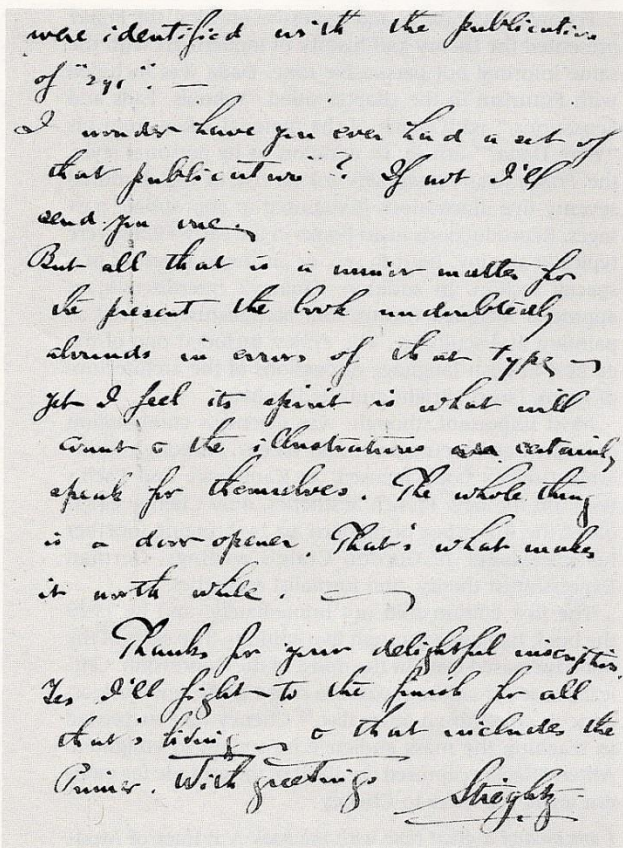 were identified with the publication
of "291". —
I wonder have you ever had a set of
that publication? If not I'll
send you one. —
But all that is a minor matter for
the present the book undoubtedly
abounds in errors of that type —
yet I feel its spirit is what will
count & the illustrations certainly
speak for themselves. The whole thing
is a door opener. That's what makes
it worth while. —
Thanks for your delightful inscription.
Yes I'll fight to the finish for all
that's living — & that includes the
Primer. With greetings
Stieglitz